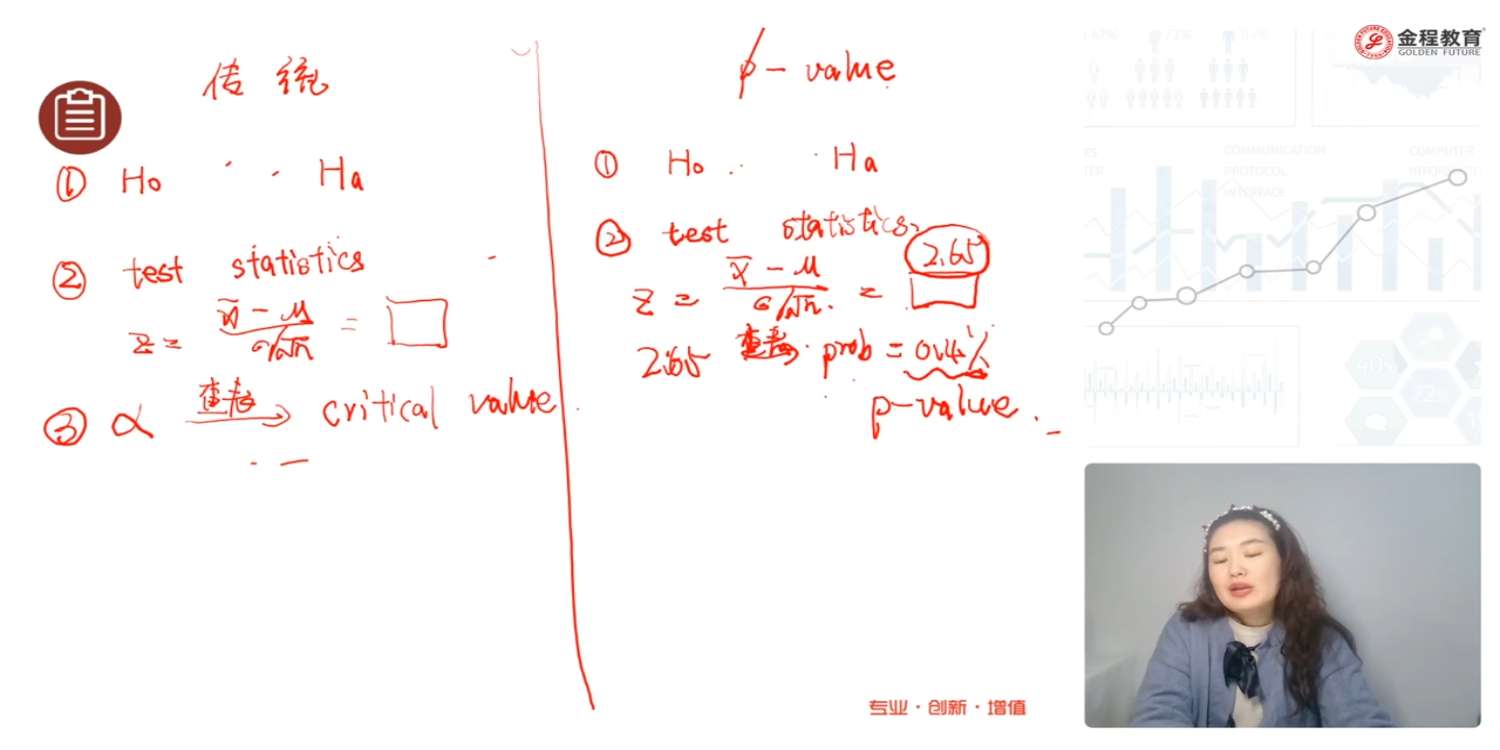 传统
① H₀ Ha
② test statistics
z = (x̄ - μ)/(σ/√n) =
③ α 查表 → critical value
p-value
① H₀ Ha
② test statistics
z = (x̄ - μ)/(σ/√n) = 2.65
2.65 查表 prob = 0.4%
p-value.
金程教育
GOLDEN FUTURE
COMMUNICATION
PROTOCOL
INTERFACE
COMPUTER
专业·创新·增值